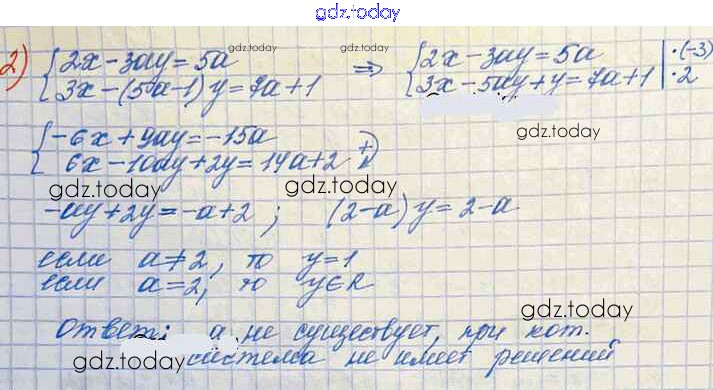 gdz.today
2) { 2x-3ay=5a gdz.today gdz.today ⇒ { 2x-3ay=5a | ·(-3)
{ 3x-(5a-1)y=7a+1 { 3x-5ay+y=7a+1 | ·2
gdz.today
{ -6x+9ay=-15a
{ 6x-10ay+2y=14a+2 (+)
gdz.today gdz.today
-ay+2y=-a+2; (2-a)y=2-a
если a≠2, то y=1
если a=2, то y∈R
gdz.today
Ответ: a не существует, при кот.
gdz.today система не имеет решений